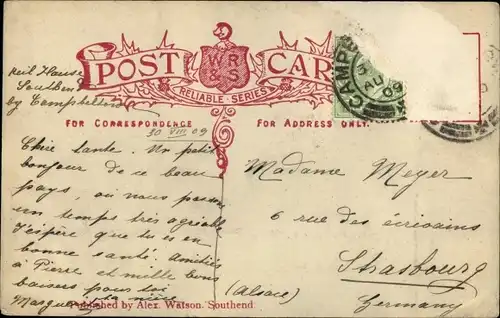 POST CARD
W R & S
RELIABLE SERIES
FOR CORRESPONDENCE
FOR ADDRESS ONLY.
CAMPB
AU
09
Neil House
Southend
by Campbeltown
30 VIII 09
Chère tante. Un petit
bonjour de ce beau
pays, où nous passons
un temps très agréable
J'espère que tu es en
bonne santé. Amitiés
à Pierre et mille bons
baisers pour toi
ta nièce
Madame Meyer
6 rue des écrivains
Strasbourg
(Alsace)
Germany
Published by Alex. Watson. Southend.